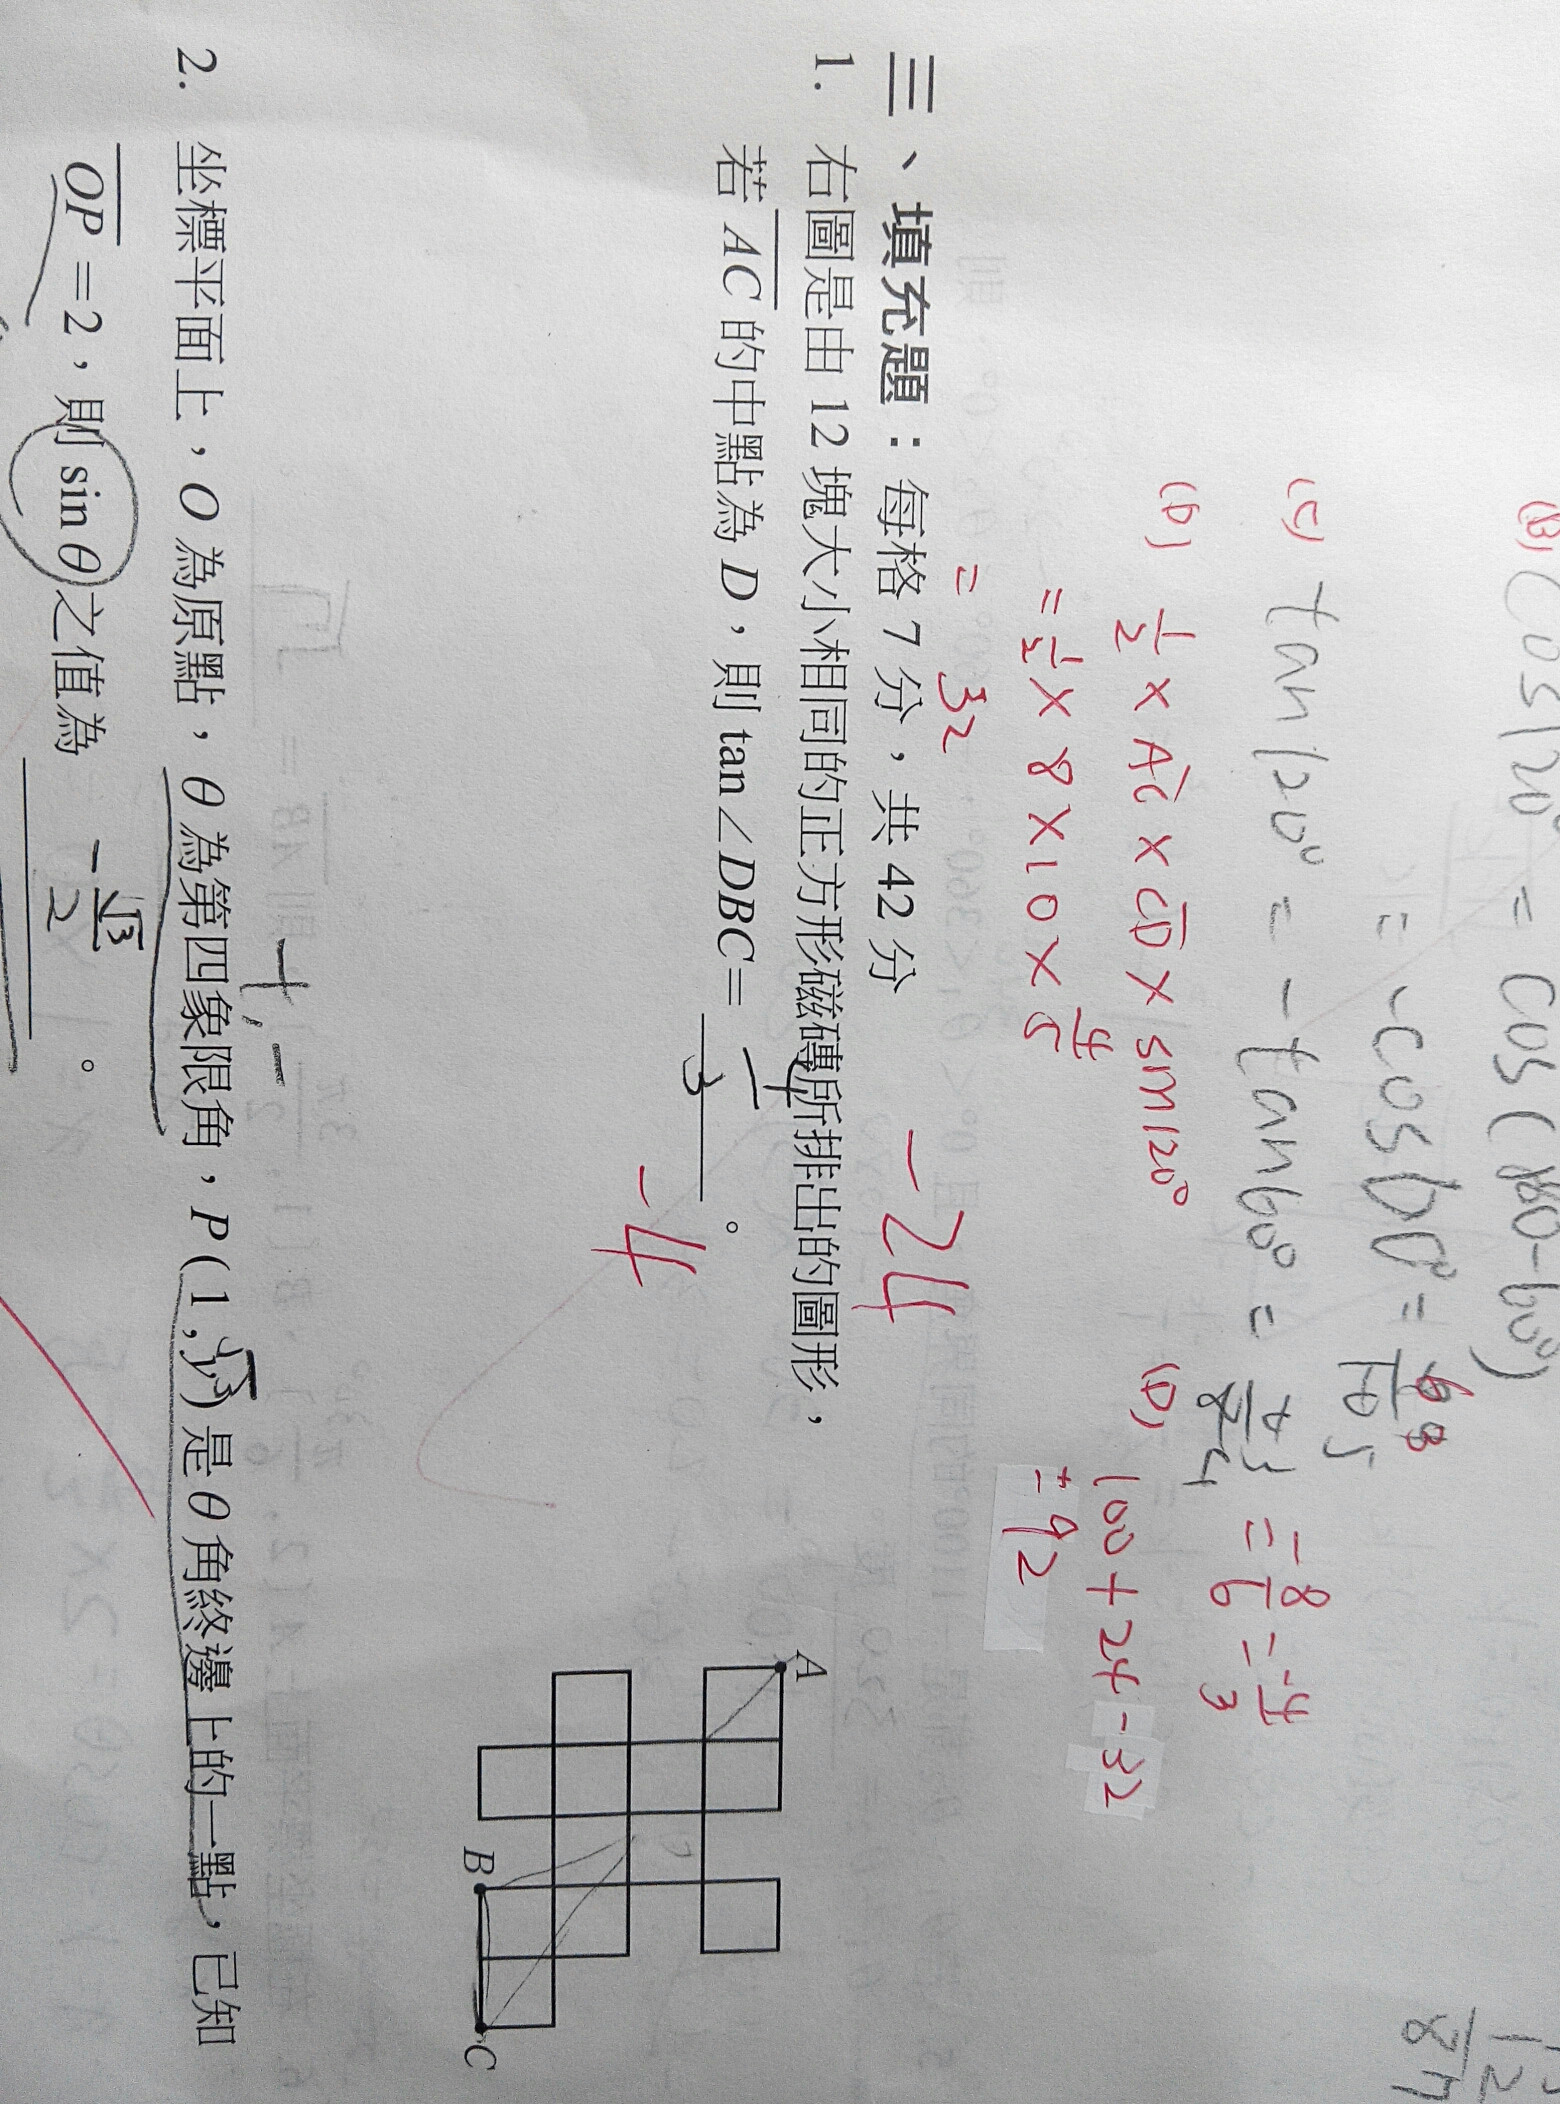 (B) cos120° = cos(180-60°)
= -cos60° =
(C) tan120° = -tan60° = = -8/6 = -4/3
(D) 1/2 × AC × CD × sin120°
= 1/2 × 8 × 10 × 4/5
= 32
(D) 100+24-32
=92
三、填充題：每格 7 分，共 42 分
-24
1. 右圖是由 12 塊大小相同的正方形磁磚所排出的圖形，
若 AC 的中點為 D，則 tan∠DBC= -4/3 。
-4
A
B
C
+, -
2. 坐標平面上，O 為原點，θ 為第四象限角，P(1, y) 是 θ 角終邊上的一點，已知
OP =2，則 sin θ 之值為 -√3/2 。